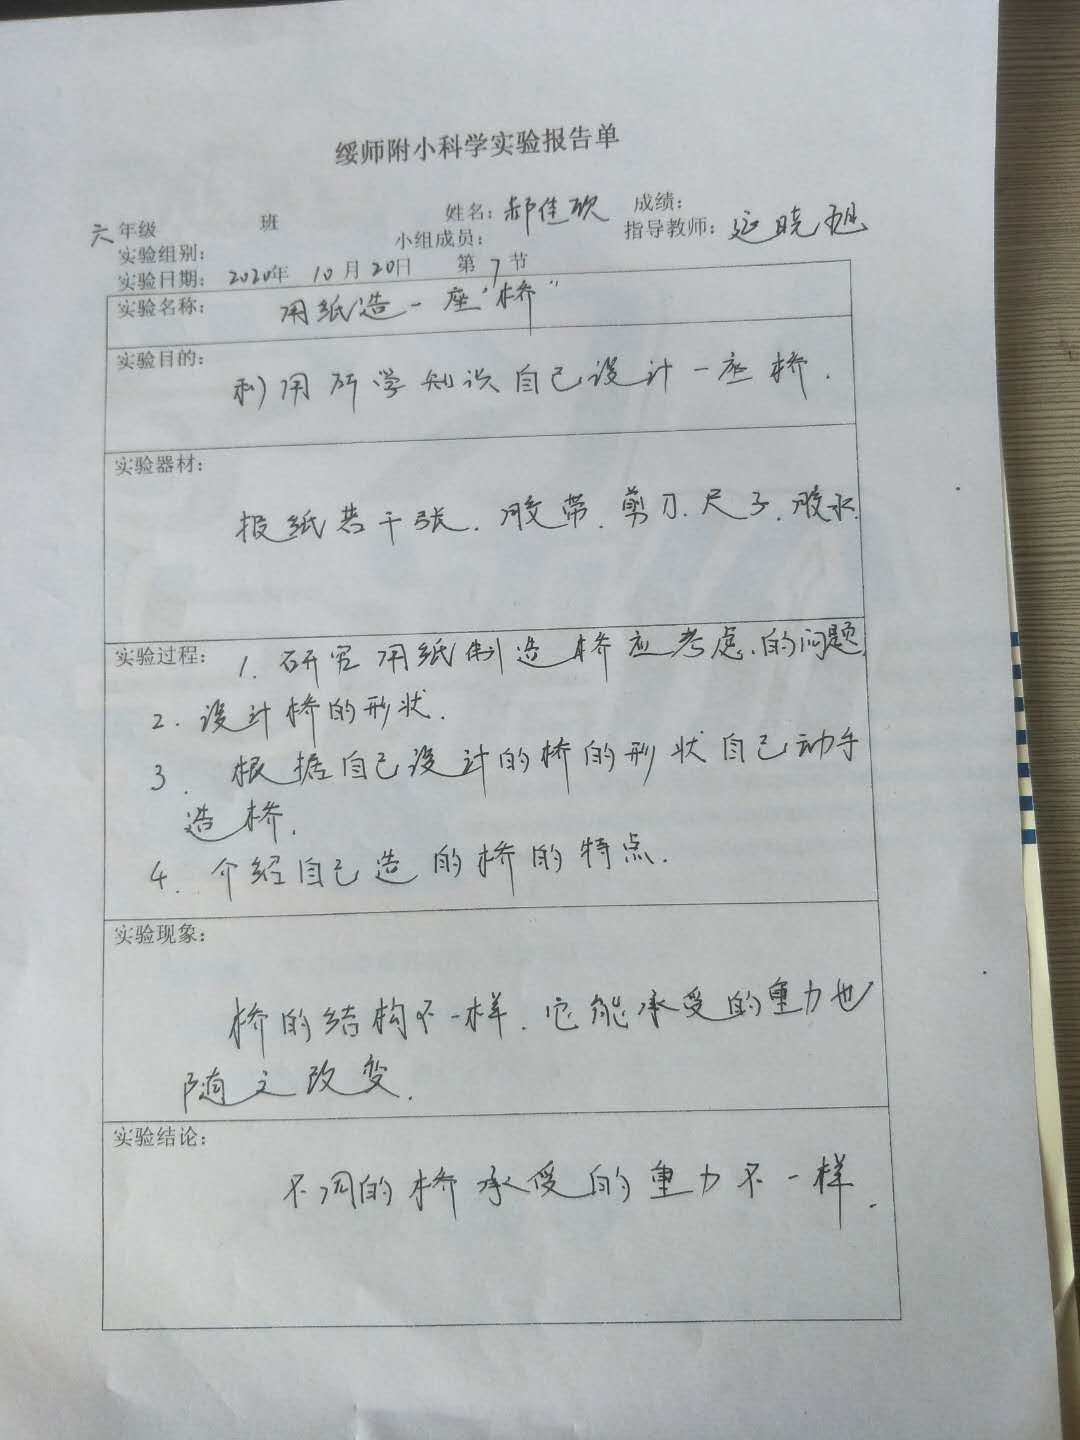 绥师附小科学实验报告单
六年级 班 姓名：郝佳欣 成绩：
实验组别： 小组成员： 指导教师：延晓旭
实验日期：2020年 10月20日 第7节
实验名称： 用纸造一座“桥”
实验目的：
利用所学知识自己设计一座桥.
实验器材：
报纸若干张.胶带.剪刀.尺子.胶水.
实验过程： 1.研究用纸制造桥应考虑的问题.
2.设计桥的形状.
3. 根据自己设计的桥的形状自己动手
造桥.
4.介绍自己造的桥的特点.
实验现象：
桥的结构不一样.它能承受的重力也
随之改变.
实验结论：
不同的桥承受的重力不一样.